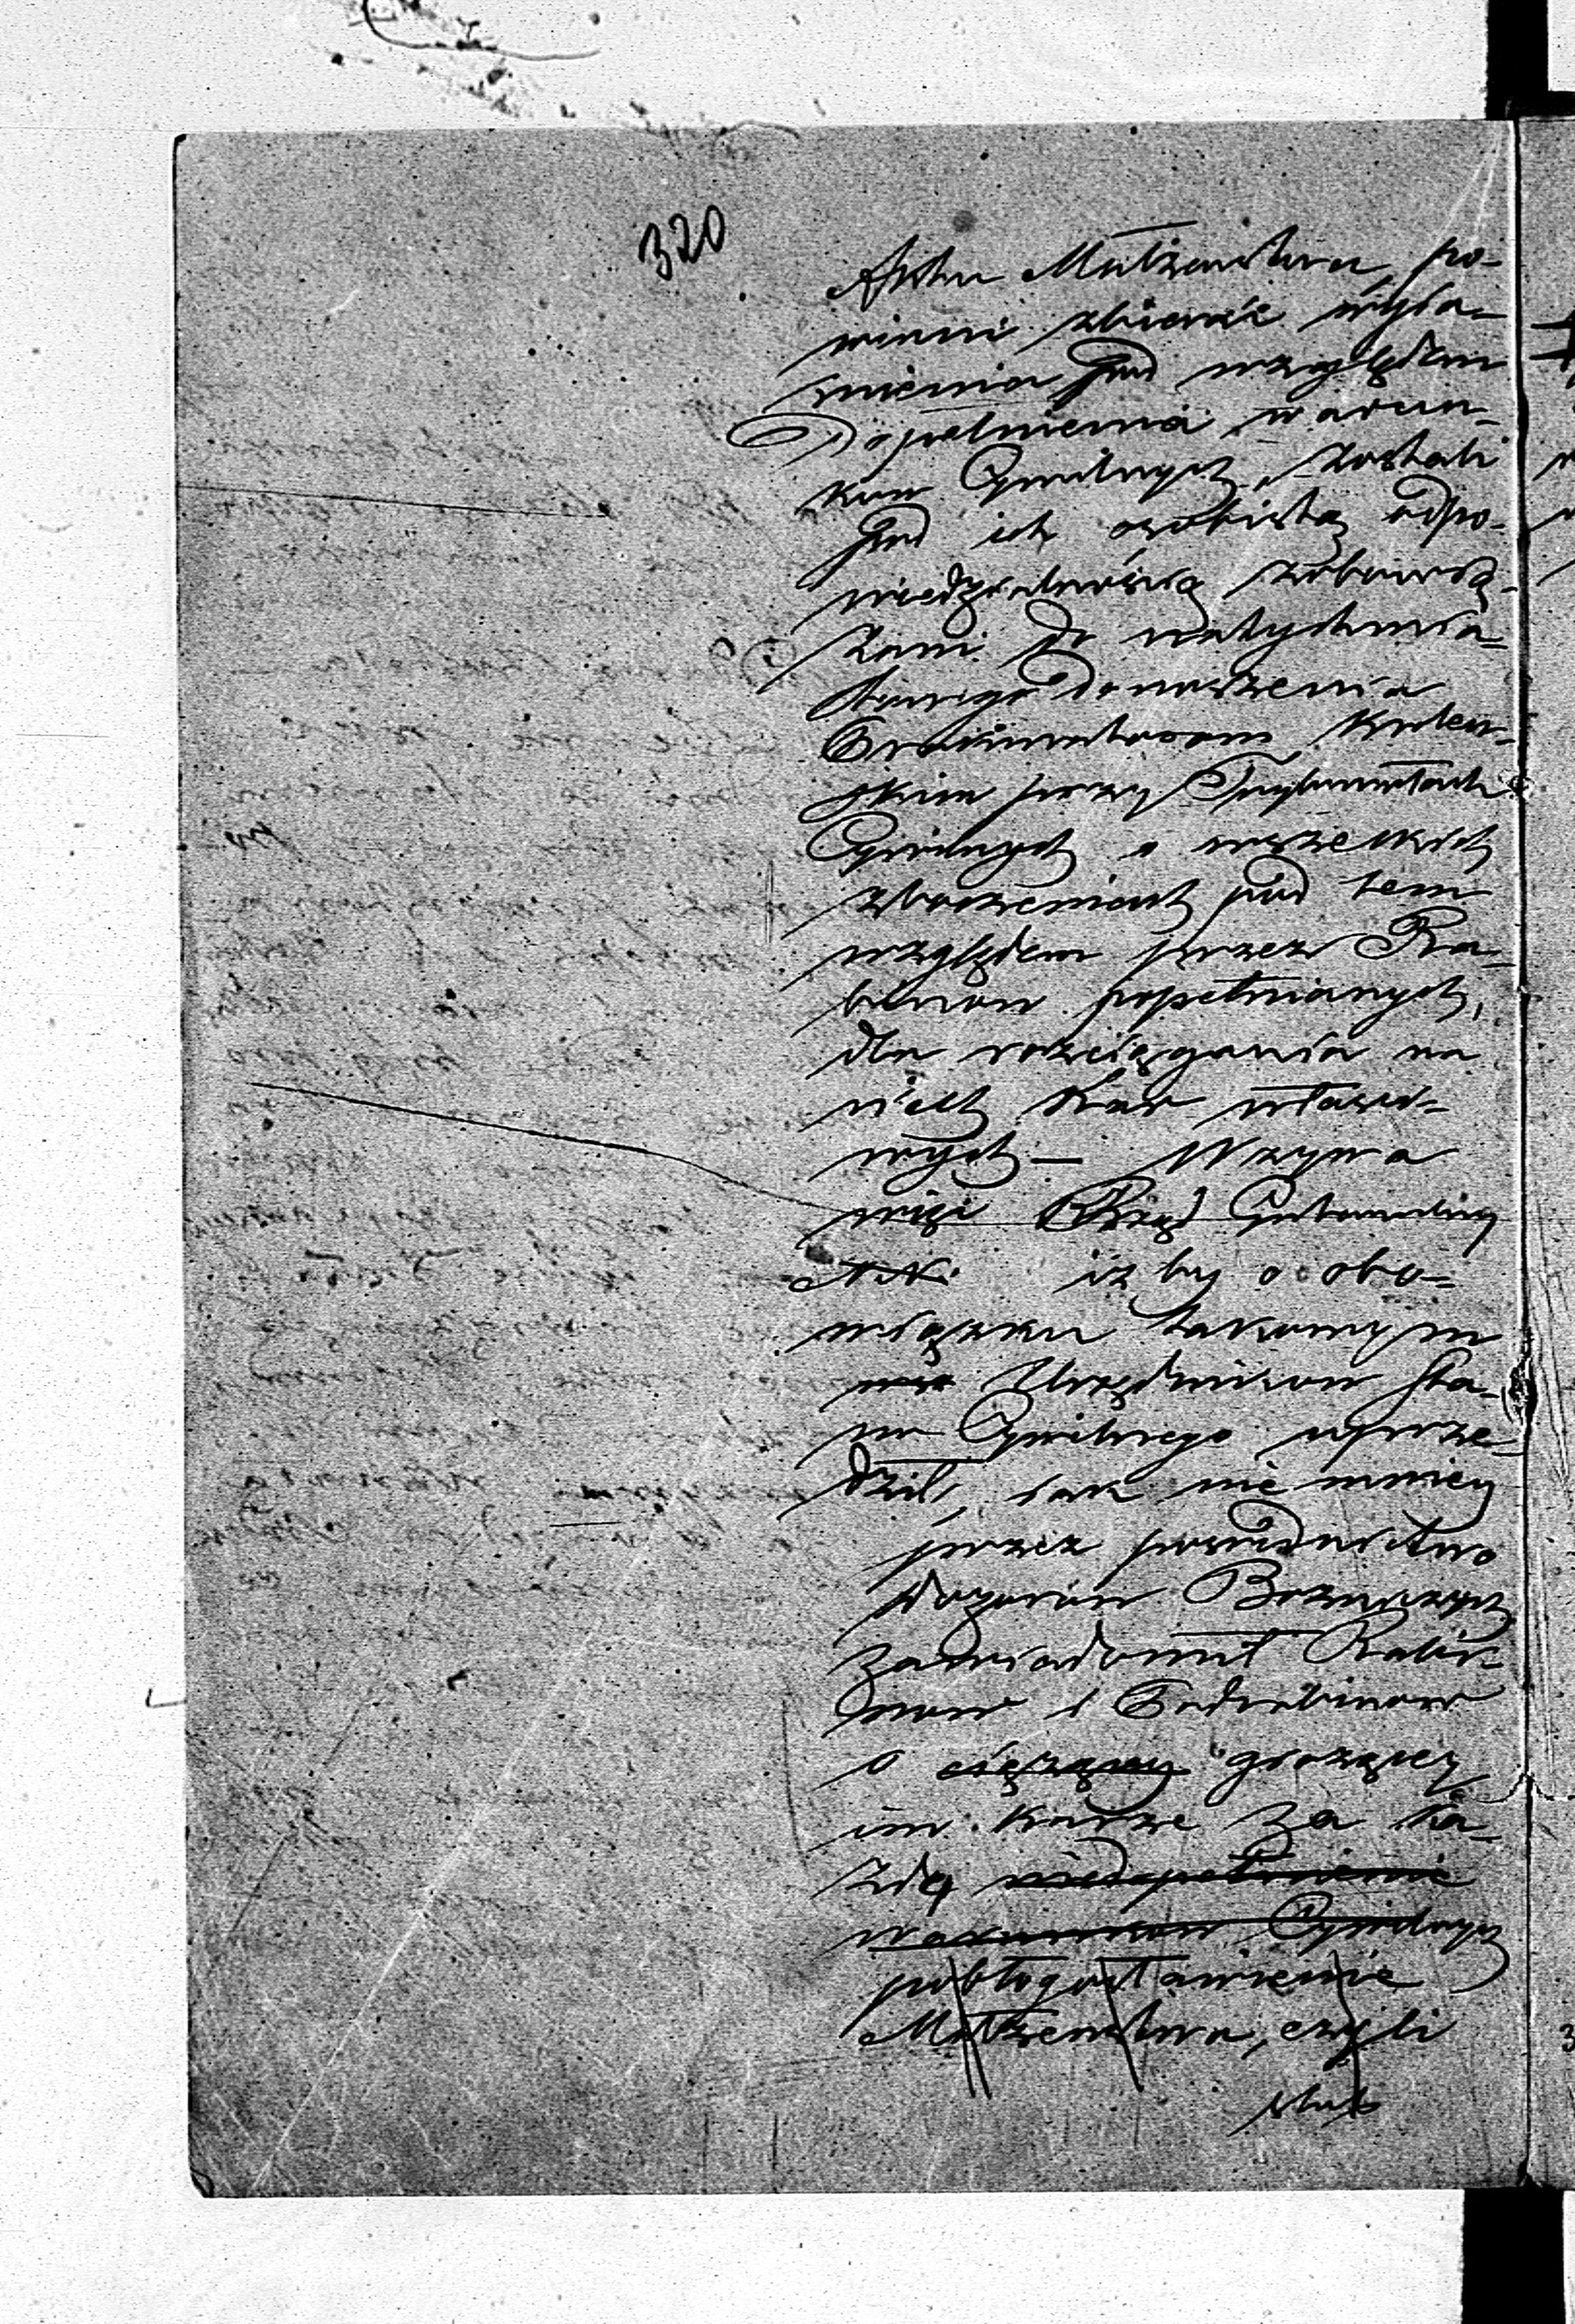 320
Aktu Małżenstwa, po-
winni zbierać wyja-
snienia pod względem
Dopełnienia warun-
kow Cywilnych, zostali
pod ich osobistą odpo-
wiedzialnością zobowią-
zani do natychmia-
stowego donoszenia
Prokuratorom Krolew-
skim przy Trybunałach
Cywilnych o wszelkich
zboczeniach pod tem
względem przez Ra-
binow popełnianych,
dla rozciągania na
nich kar właści-
wych — Wzywa
więc Rząd Gubernialny
NN. iżby o obo-
wiązku takowym
Urzędnikow Sta-
nu Cywilnego uprze-
dził, jak nie mniey
przez posrednictwo
dozorów Boznicznych
zawiadomił Rabi-
now i Podrabinow
o ciężącey grożącey
im karze za ka-
żdę niedopełnienie
warunkow Cywilnych
pobłogosławienie
Małżenstwa, czyli
slub